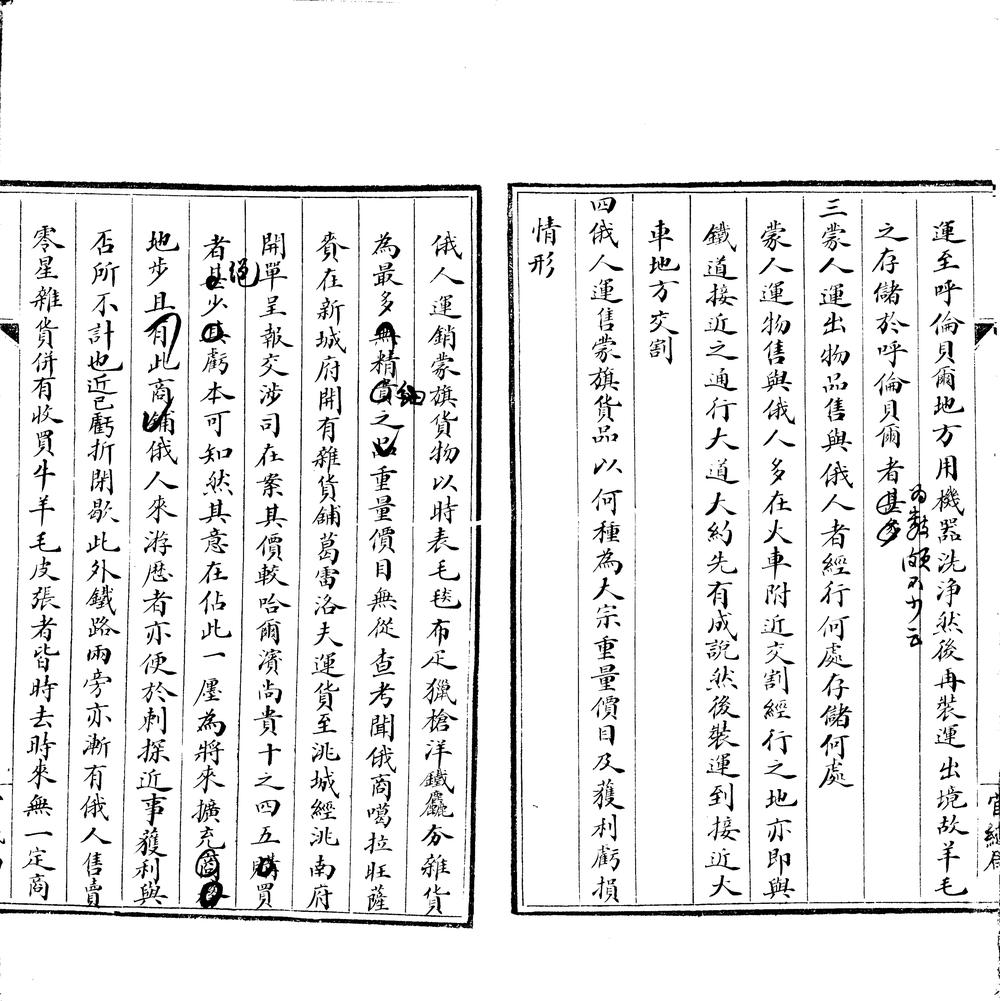 運至呼倫貝爾地方用機器洗浄然後再裝運出境故羊毛
之存儲於呼倫貝爾者甚多
為數頗不少云
三蒙人運出物品售與俄人者經行何處存儲何處
蒙人運物售與俄人多在火車附近交割經行之地亦即與
鐵道接近之通行大道大約先有成說然後裝運到接近火
車地方交割
四俄人運售蒙旗貨品以何種為大宗重量價目及獲利虧損
情形
俄人運銷蒙旗貨物以時表毛毯布疋獵槍洋鐵麤夯雜貨
為最多無精貴之品重量價目無從查考聞俄商噶拉旺薩
細
賚在新城府開有雜貨舖葛雷洛夫運貨至洮城經洮南府
開單呈報交涉司在案其價較哈爾濱尚貴十之四五購買
者甚少其虧本可知然其意在佔此一㕓為將來擴充商
絕
地步且有此商舖俄人來游歷者亦便於刺探近事獲利與
否所不計也近已虧折閉歇此外鐵路兩旁亦漸有俄人售賣
零星雜貨併有收買牛羊毛皮張者皆時去時來無一定商